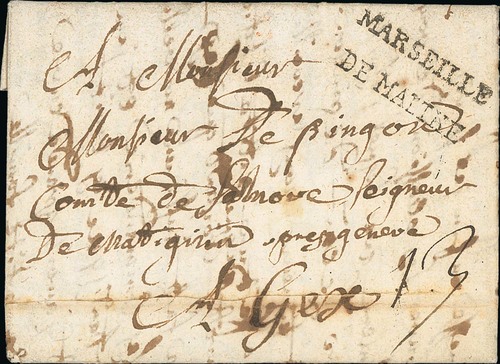 MARSEILLE
DE MALTHE
A Monsieur
Monsieur De
Comte de Seigneur
De pres geneve
A Gex 13